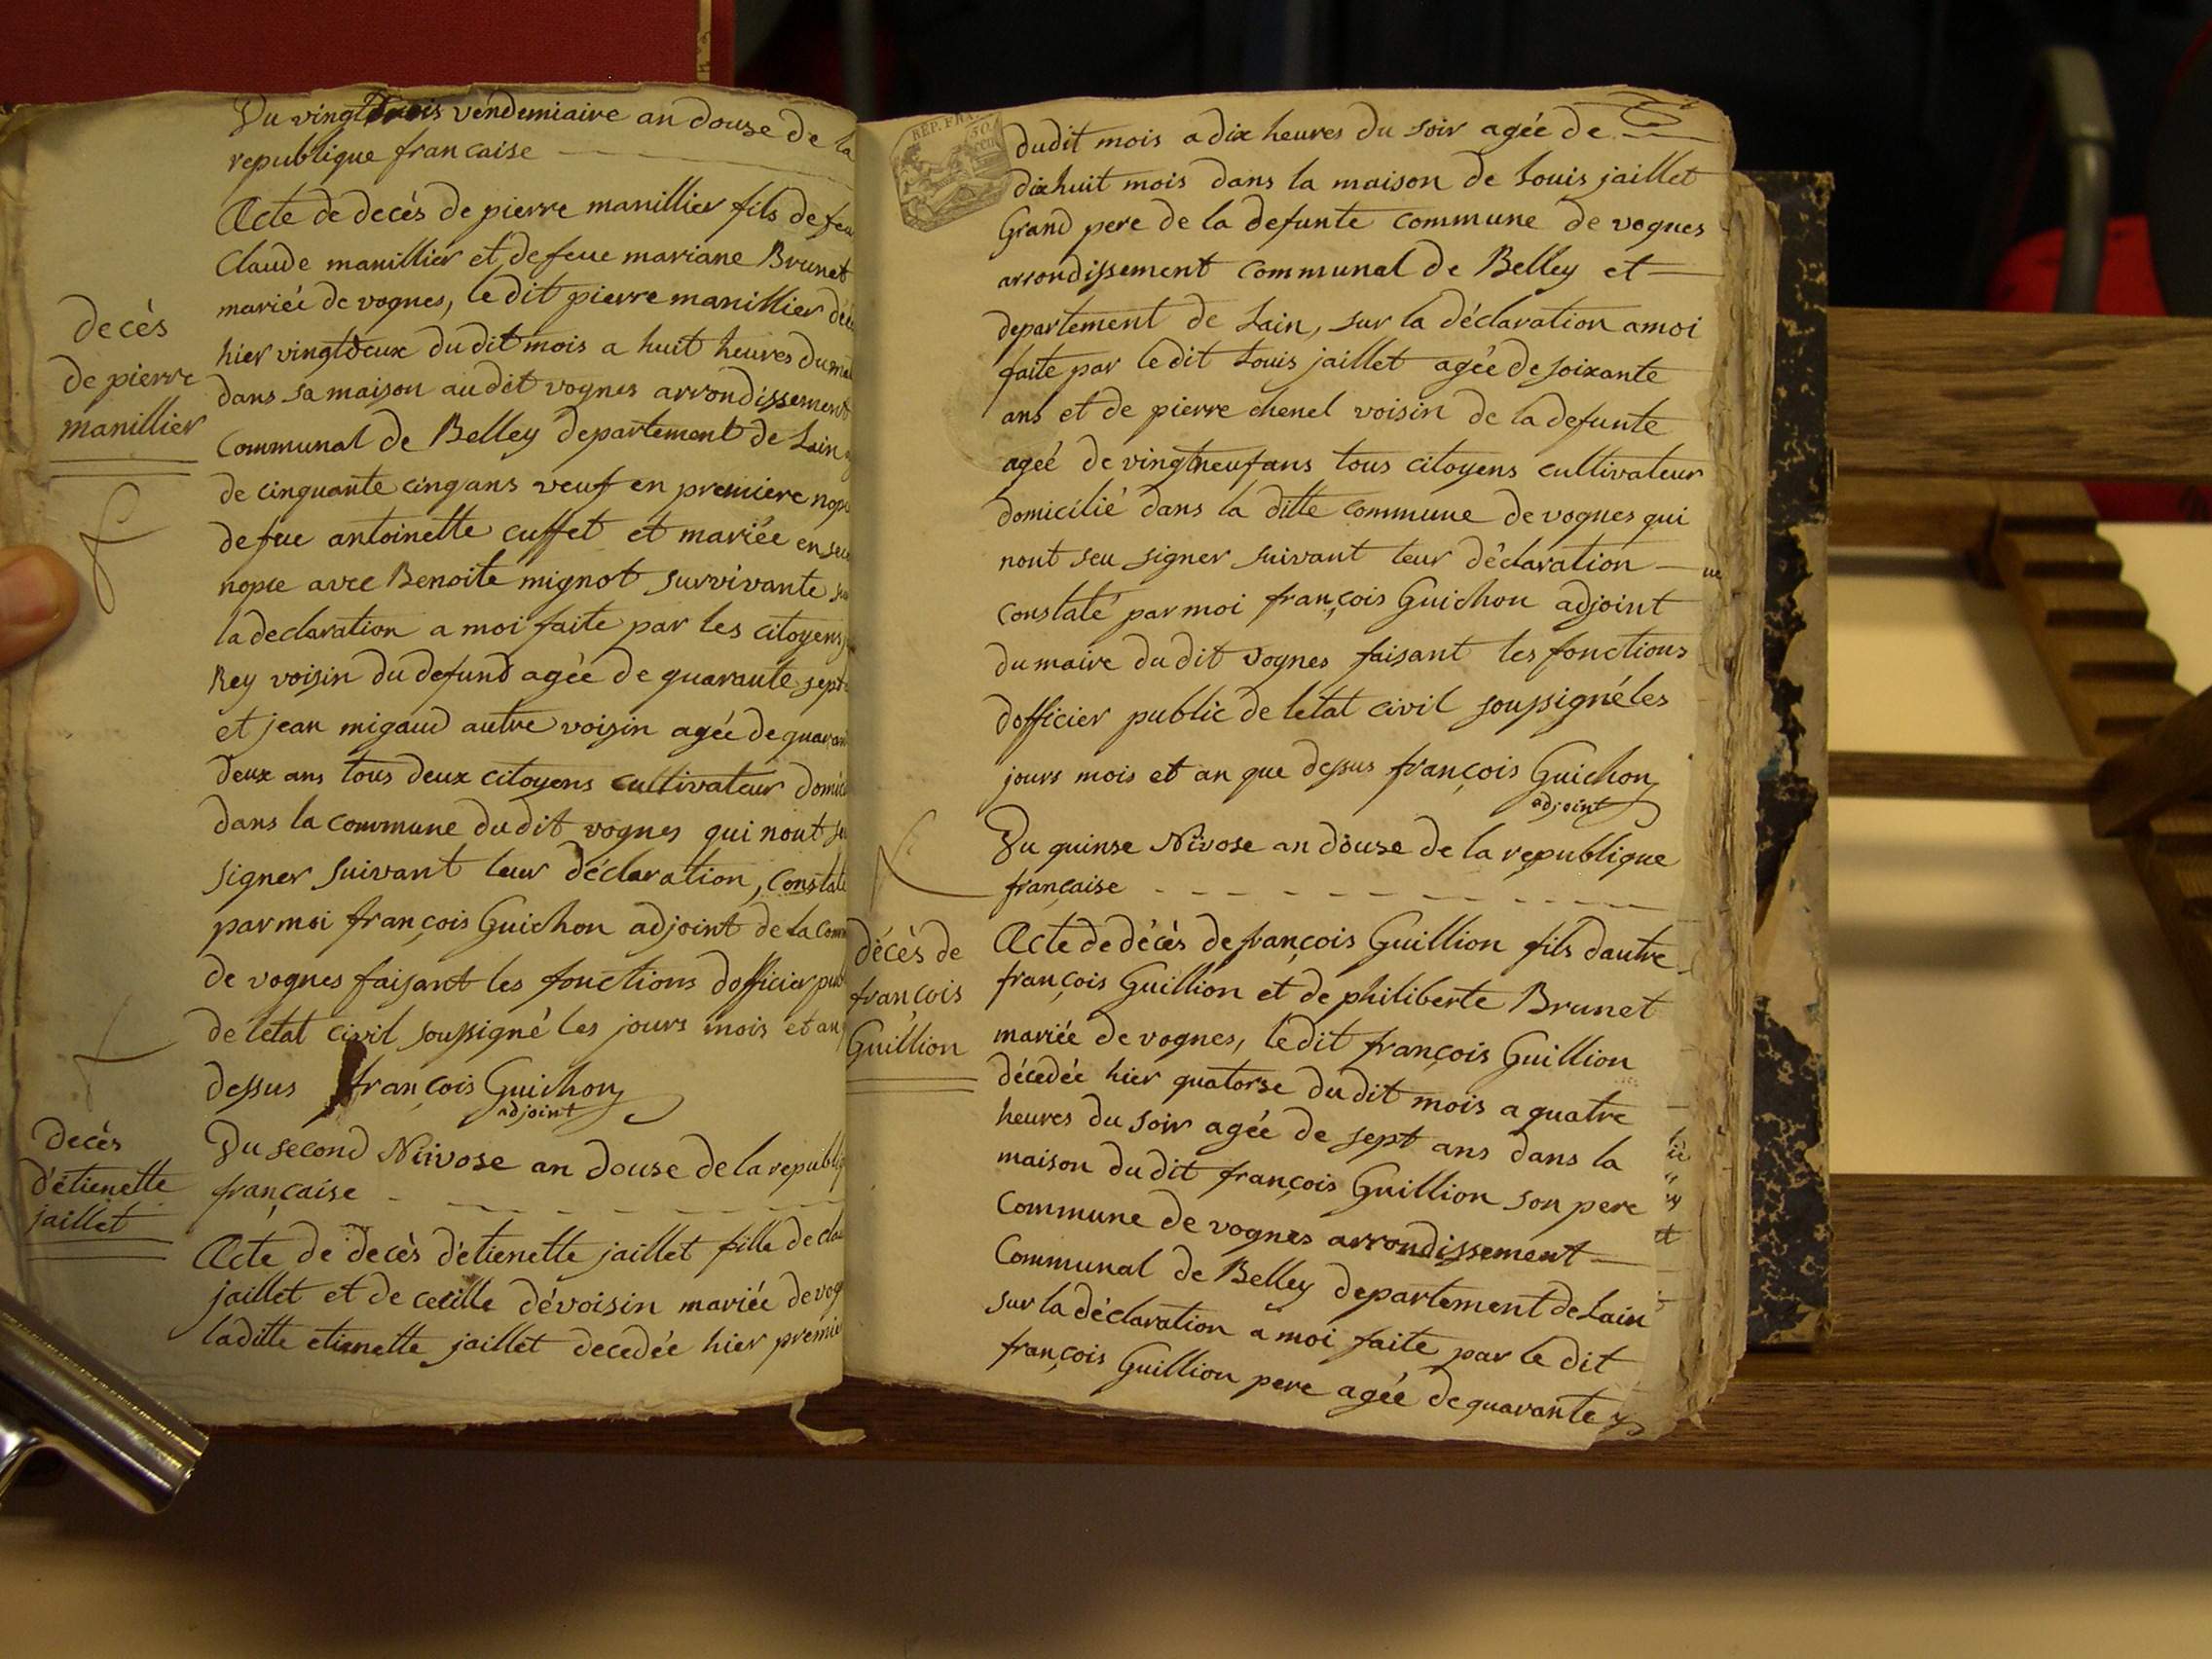 Du vingt trois vendemiaire an douse de la
republique francaise
Acte de decès de pierre manillier fils de feu
Claude manillier et de feue mariane Brunet
mariée de vognes, le dit pierre manillier
hier vingt deux du dit mois a huit heures du
dans sa maison au dit vognes arrondissement
communal de Belley departement de Lain
de cinquante cinq ans veuf en premiere
de feue antoinette cuffet et mariée en
nopce avec Benoite mignot survivante
la declaration a moi faite par les citoyens
Rey voisin du defund agée de quarante sept
et jean migaud autre voisin agée de
deux ans tous deux citoyens cultivateur
dans la commune du dit vognes qui nont
signer suivant leur déclaration,
par moi françois Guichon adjoint de la
de vognes faisant les fonctions dofficier
de letat civil soussigné les jours mois et an
dessus françois Guichon
adjoint
decès
de pierre
manillier
Du second Nivose an douse de la
française
Acte de decès détienette jaillet fille de
jaillet et de cecille dévoisin mariée de
la ditte etienette jaillet decedée hier
Decès
détienette
jaillet
REP. FRA
50
cen
dudit mois a dix heures du soir agée de
dixhuit mois dans la maison de Louis jaillet
Grand pere de la defunte commune de vognes
arrondissement communal de Belley et
departement de Lain, sur la déclaration amoi
faite par le dit Louis jaillet agée de soixante
ans et de pierre chenel voisin de la defunte
agéé de vingt neuf ans tous citoyens cultivateur
domicilié dans la ditte commune de vognes qui
nont seu signer suivant leur déclaration
constaté par moi françois Guichon adjoint
du maire du dit vognes faisant les fonctions
dofficier public de letat civil soussigné les
jours mois et an que dessus françois Guichon
adjoint
Du quinse Nivose an douse de la republique
française
Acte de décès de françois Guillion fils dautre
françois Guillion et de philiberte Brunet
mariée de vognes, le dit françois Guillion
décedée hier quatorse du dit mois a quatre
heures du soir agée de sept ans dans la
maison du dit françois Guillion son pere
Commune de vognes arrondissement
Communal de Belley departement de Lain
sur la déclaration a moi faite par le dit
françois Guillion pere agée de quarante
décès de
françois
Guillion